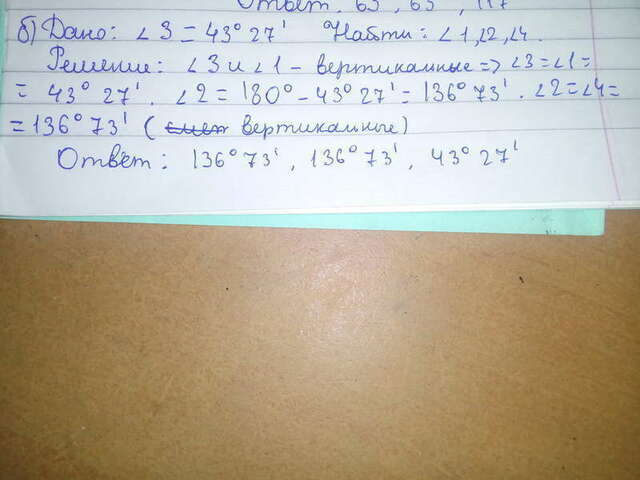 Ответ: 63°, 63°, 117°
б) Дано: ∠3 = 43° 27' Найти: ∠1, ∠2, ∠4.
Решение: ∠3 и ∠1 - вертикальные => ∠3 = ∠1 =
= 43° 27'. ∠2 = 180° - 43° 27' = 136° 73'. ∠2 = ∠4 =
= 136° 73' (вертикальные)
Ответ: 136° 73', 136° 73', 43° 27'